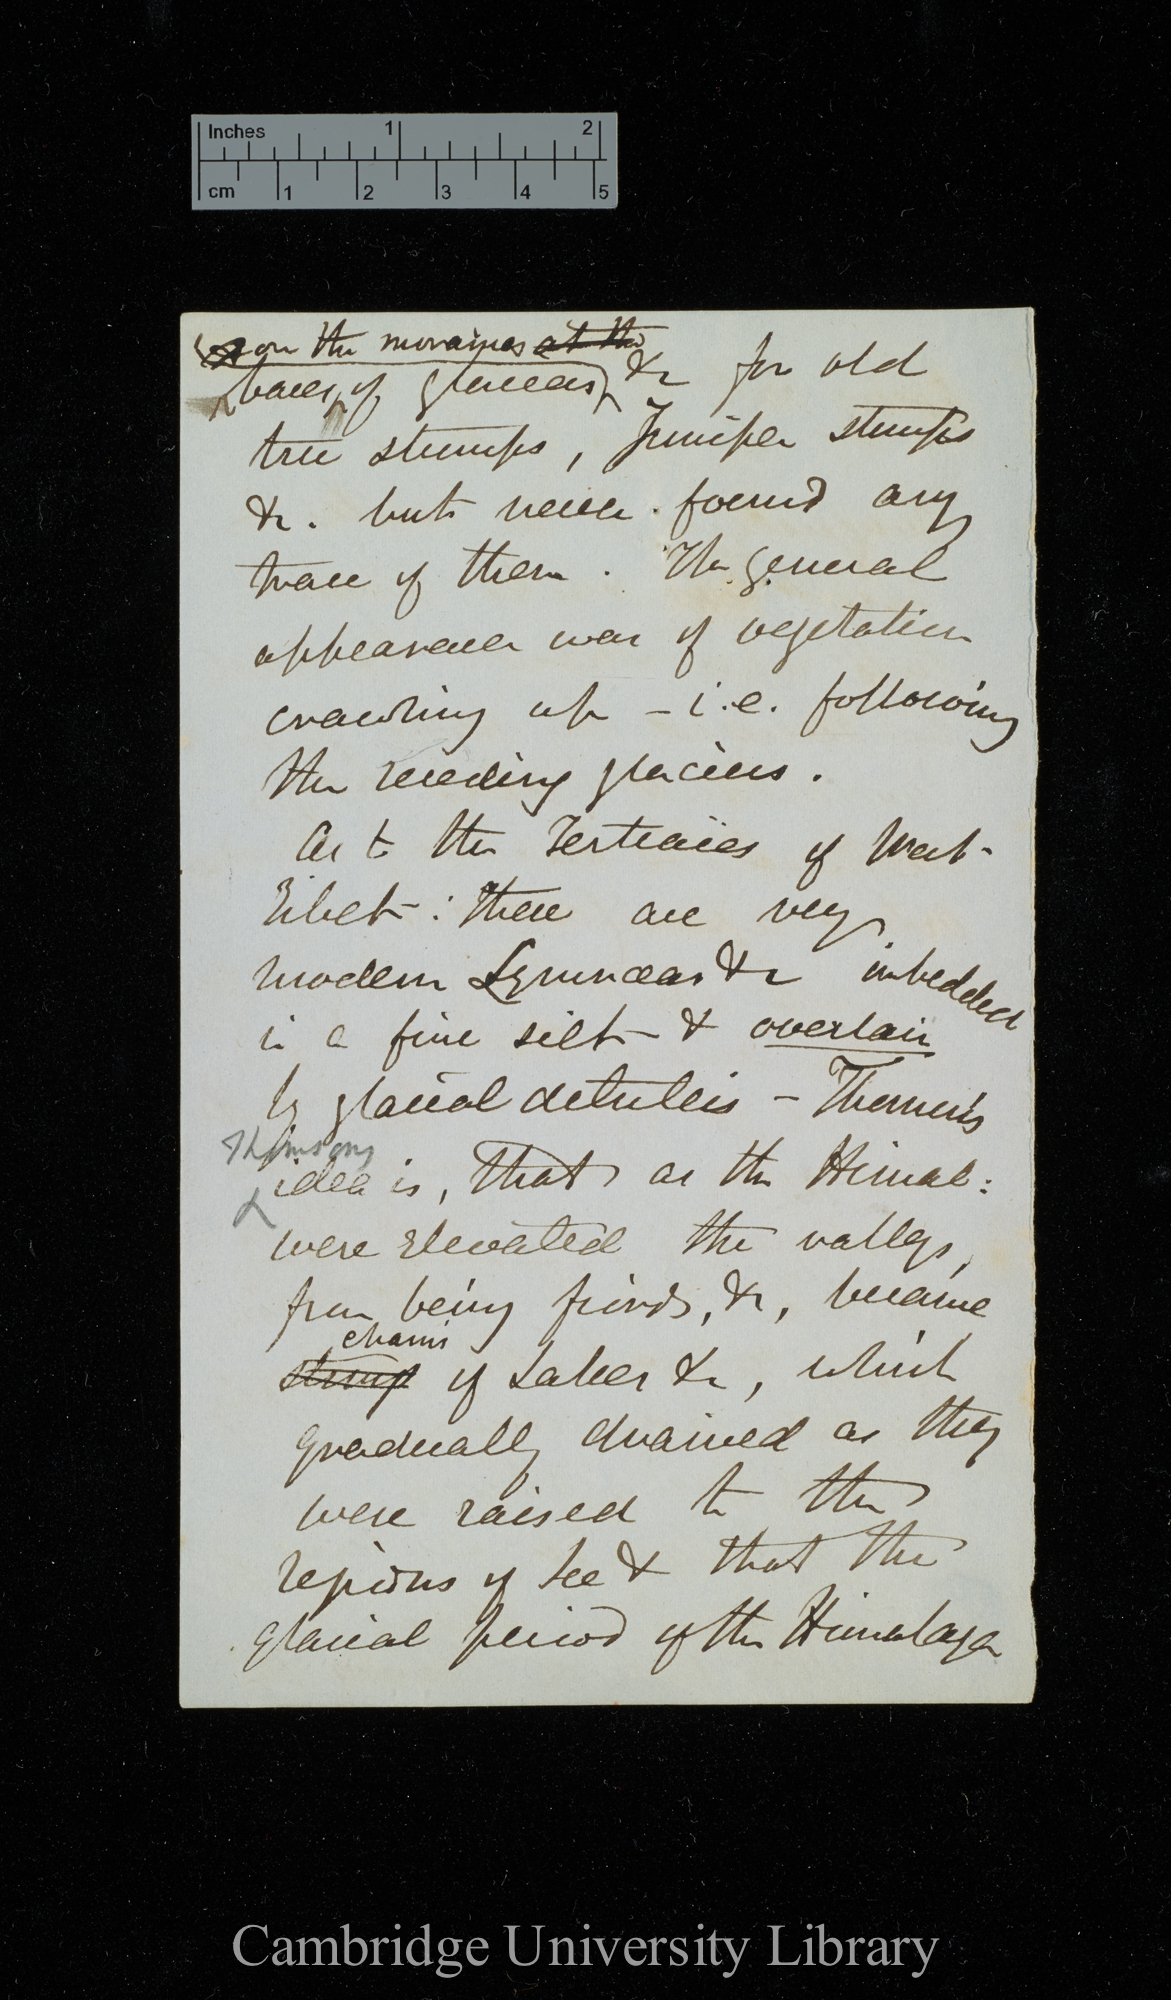 Inches 1 2
cm 1 2 3 4 5
on the moraines at the
bases of glaciers &c for old
tree stumps, Juniper stumps
&c. but never found any
trace of them. The general
appearance was of vegetation
crawling up – i.e. following
the receding glaciers.
As to the Tertiaries of West
Tibet: there are very
modern Lymnæas &c imbedded
in a fine silt – & overlain
by glacial detritus – Thomson's
Thomsons
idea is, that as the Himal:
were elevated the valleys,
from being fiords, &c, became
chains
strings of Lakes &c, which
gradually drained as they
were raised to the
regions of Ice & that the
glacial period of the Himalaya
Cambridge University Library